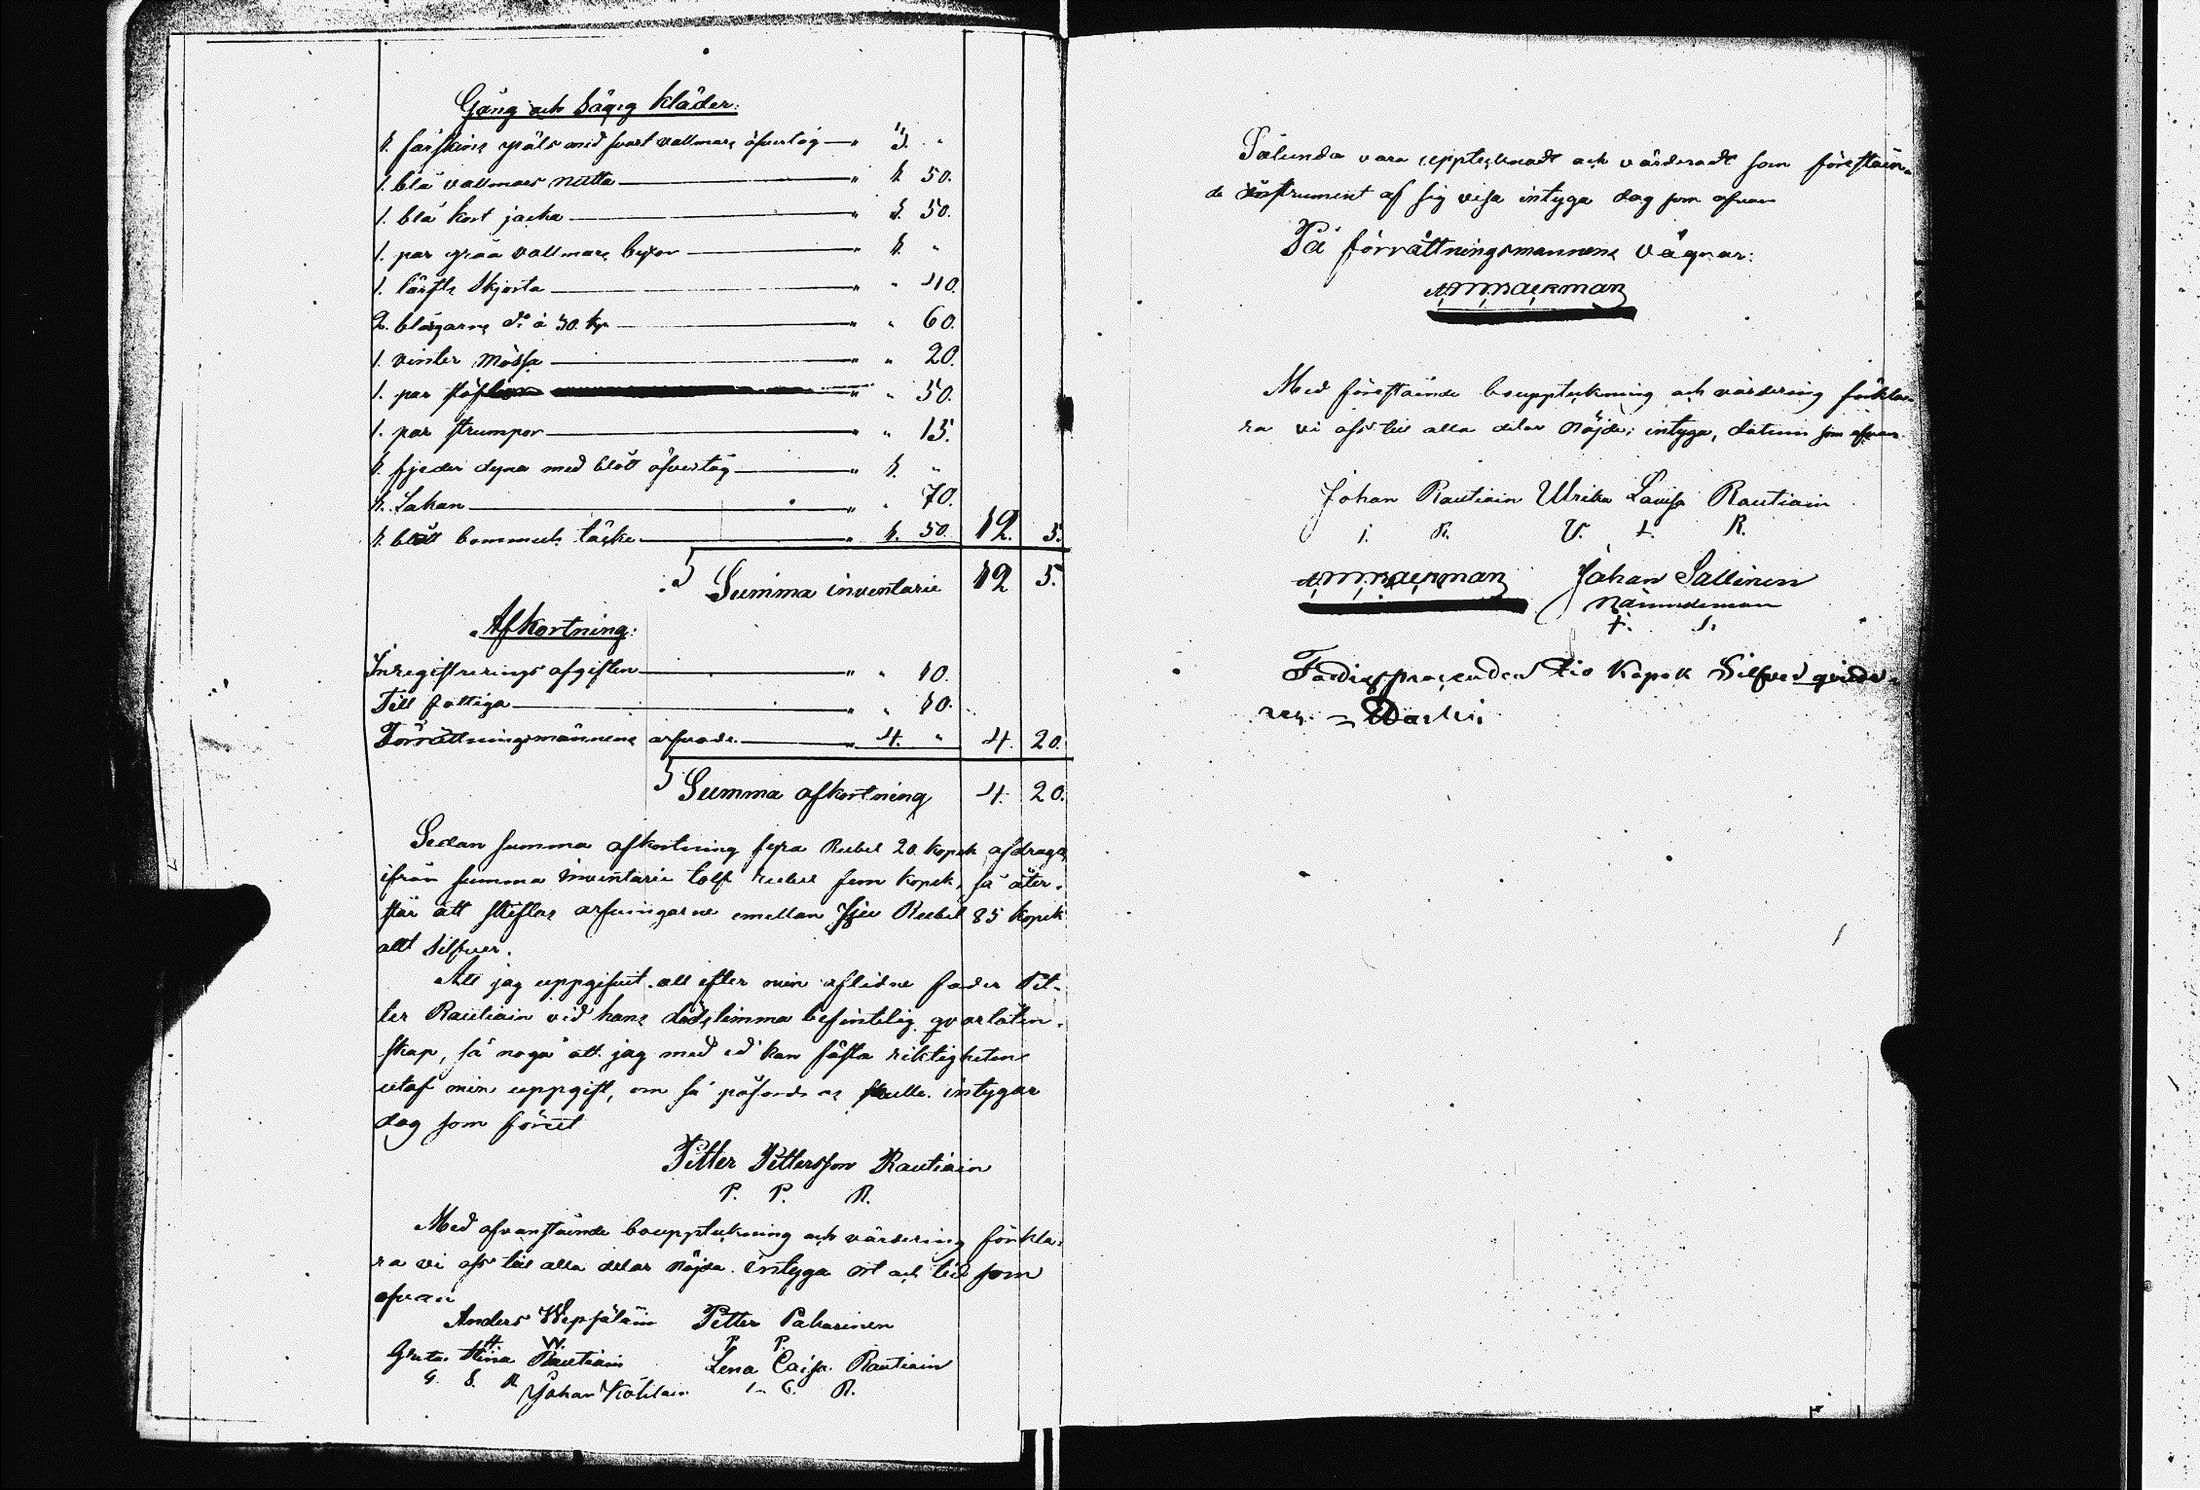 Gång och Säng kläder:
1. fårskins päls med svart vallmars öfvertog — " 3. "
1. blå vallmars mutta — " 1. 50.
1. blå kort jacka — " 1. 50.
1. par gråa vallmars byxor — " 1. "
1. lärfts skjorta — " " 40.
2. blågarns d:o à 30. kp — " " 60.
1. vinter mössa — " " 20.
1. par stöflor — " " 50.
1. par strumpor — " " 15.
1. fjeder dyna med blått öfvertog — " 1. "
1. Lakan — " " 70.
1. blått bommuls täcke — " 1. 50. 12. 5.
S Summa inventarie 12 5.
Afkortning:
Inregistrerings afgiften — " " 10.
Till fattiga — " " 10.
Förrättningsmännens arfvode — " 4. " 4. 20.
S Summa afkortning 4. 20.
Sedan summa afkortning fyra Rubel 20. kopek afdrages
ifrån summa inventarie tolf rubel fem kopek, så åter-
står att skiftas arfvingarne emellan sju Rubel 85 kopek
allt silfver.
Att jag uppgifvit all efter min aflidne fader Pet-
ter Rautiain vid hans dödstimma befintelig qvarlåten-
skap, så noga att jag med ed kan fästa riktigheten
utaf min uppgift, om så påfordras skulle. intygar
dag som förut
Petter Pettersson Rautiain
P. P. R.
Med ofvanstående bouppteckning och värdering förkla-
ra vi oss till alla delar nöjda. intyga ort och tid som
ofvan
Anders Petter Pakarinen
A W. P. P.
Greta Stina Rautiain Lena Caisa Rautiain
G. S. R. L. C. R.
Johan
Sålunda vara upptecknadt och värderadt som förestån-
de instrument af sig visa intyga dag som ofvan
På förrättningsmannens vägnar:
Med förestående bouppteckning och värdering förkla-
ra vi oss till alla delar nöjde; intyga, datum som ofvan
Johan Rautiain Ulrika Lovisa Rautiain
J. R. U. L. R.
Johan Sallinen
Nämndeman
Fattigprocenden tio Kopek Silfver qvitte-
ras.